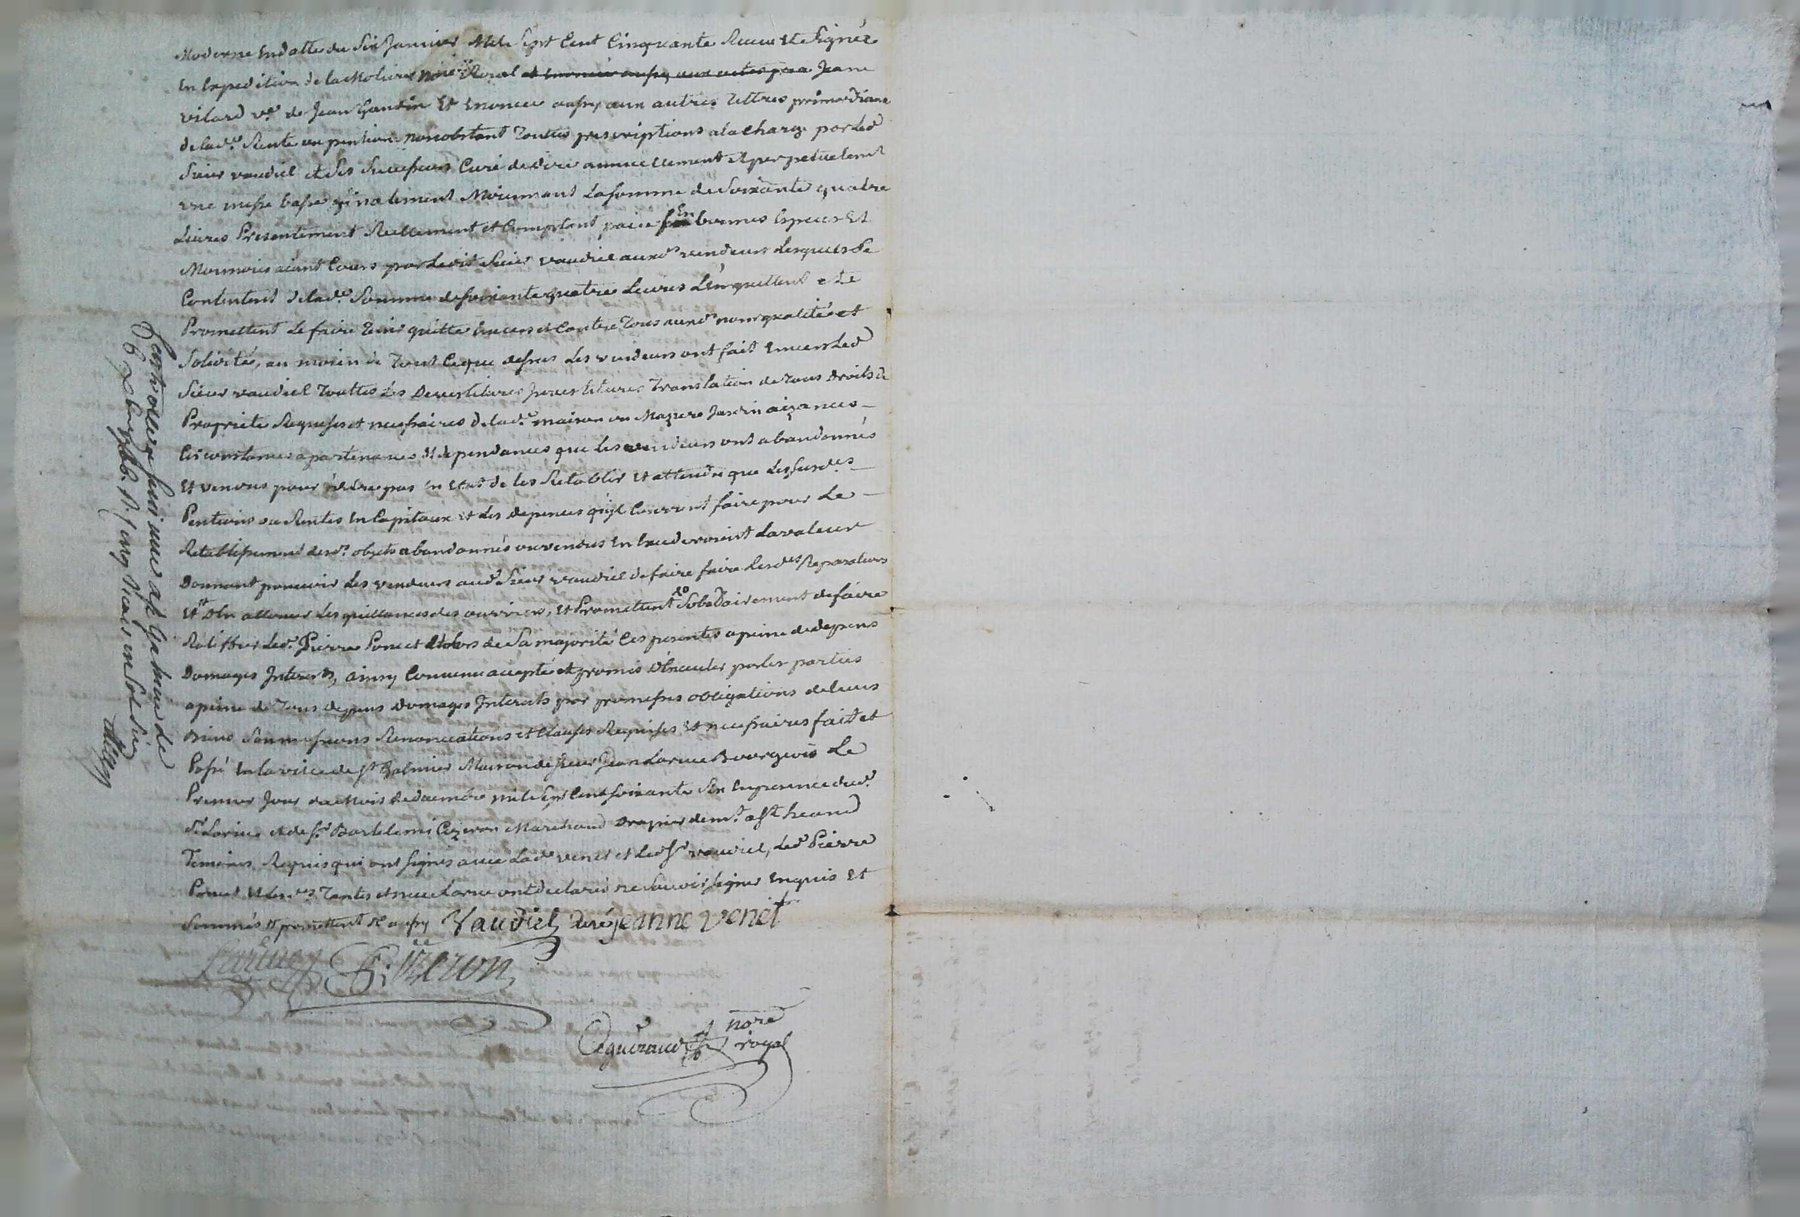 Moderne En datte du Six Janvier Mil Sept Cent Cinquante Receu et Signée
En Expedition de la Moliere Nore Roial et enoncée aussy aux actes par Jeane
vilard ve. de Jean Gaudin Et Enoncée aussy aux autres Tittres primordiaux
de lad. Rente ou pention nonobstant Touttes prescriptions a la charge par led
Sieur vaudiel et Ses Successeurs Curé de dire annuellement et perpetuelemt
une messe basse finalement Moiennant La somme de Soixante quatre
Livres Presentement Reellement et Comptant paiée En bonnes Especes Et
Monnoies aiant Cours par Ledit Sieur vaudiel auxd. vendeurs Lesquels Se
Contentent de lad. Somme de soixante quatre Livres L'En quittent et Le
Promettent Le faire Tenir quitte Envers et Contre Tous auxd. nom qualités et
Solidité, au moien de Tout Ce que dessus Les vendeurs ont fait Envers Led
Sieur vaudiel Touttes Les Devestitures Investitures Translation de Tous Droits de
Proprieté Requises et necessaires de lad. maison ou Mazure Jardin aizances
Circonstances apartenances et dependances que les vendeurs ont abandonnés
Et vendus pour n'être pas En Etat de les Retablir Et attendu que Les susdes
Pentions ou Rentes En Capitaux et Les depences qu'il Convient faire pour Le
Retablissement desd. objets abandonnés ou vendus En Excederoient La valeur
Donnant pouvoir Les vendeurs aud. Sieur vaudiel de faire faire Lesdes Reparations
Et D'En allouer Les quittances des ouvriers, Et Promettent Solidairement de faire
Ratiffier Led. Pierre Poncet Lors de Sa majorité Ces presentes a peine de depens
Domages Interets, ainsy Convenu accepté et promis D'Executer par les parties
a peine de Tous depens Domages Interets par promesses obligations de leurs
Biens Soumissions Renonciations et Clauses Requises Et necessaires fait et
Passé En la ville de St Galmier Maison de Sieur Jean Larue Bourgeois Le
Premier Jour du Mois de decembre mil Sept Cent Soixante Six En presence dud.
Sr Larue et de Sr Bartelemi Cizeron Marchand Drapier
Temoins Requis qui ont Signés avec Lad. venet et Led. Sr vaudiel, Led. Pierre
Poncet Et Les ont declaré ne Savoir Signer Enquis Et
Sommés Vaudiel Curé Jeanne venet
Larue Cizeron
Nore
royal
Controlé a St Galmier le